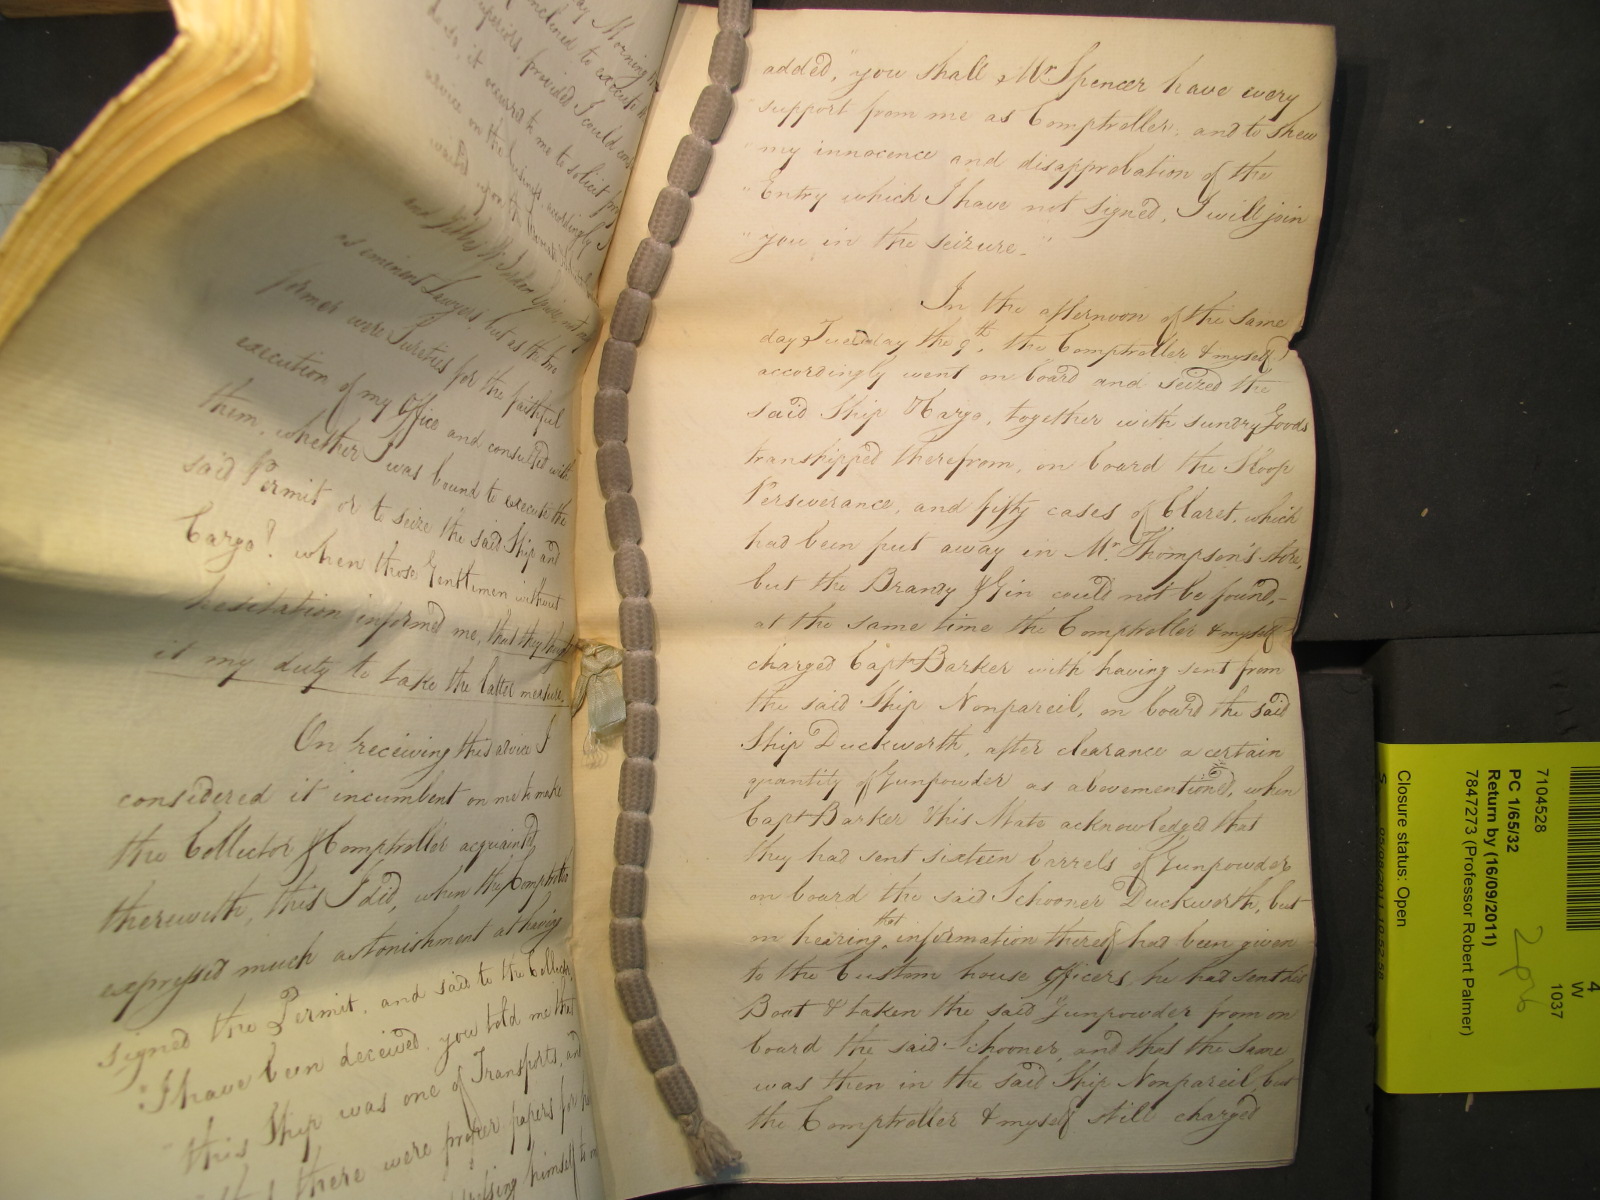 ay Morning
inclined to execute
provided I could
do so, it occurred to me to solicit
advice on the business, accordingly I
upon
and
as eminent Lawyers, but as the two
former were Sureties for the faithful
execution of my Office and consulted with
them, whether I was bound to execute the
said Permit or to seize the said Ship and
Cargo? when those Gentlemen without
hesitation informed me, that they thought
it my duty to take the latter measure.
On receiving this advice I
considered it incumbent on me to make
the Collector & Comptroller acquainted
therewith, this I did, when the Comptroller
expressed much astonishment at having
signed the Permit, and said to the Collector
"I have been deceived. you told me that
" this Ship was one of Transports, and
there were proper papers for
himself to
added, "you shall Mr Spencer have every
" support from me as Comptroller, and to shew
" my innocence and disapprobation of the
" Entry which I have not signed, I will join
" you in the seizure."
In the afternoon of the same
day Tuesday the 9th, the Comptroller & myself
accordingly went on board and seized the
said Ship & Cargo, together with sundry Goods
transhipped therefrom, on board the Sloop
Perseverance, and fifty cases of Claret, which
had been put away in Mr Thompson's store,
but the Brandy & Gin could not be found,-
at the same time the Comptroller & myself
charged Capt Barker with having sent from
the said Ship Nonpareil, on board the said
Ship Duckworth, after clearance a certain
quantity of Gunpowder as abovementioned, when
Capt Barker & his Mate acknowledged that
they had sent sixteen barrels of Gunpowder
on board the said Schooner Duckworth, but
on hearing that information thereof had been given
to the Custom house Officers, he had sent his
Boat & taken the said Gunpowder from on
board the said Schooner, and that the same
was then in the said Ship Nonpareil, but
the Comptroller & myself still charged
4
W
1037
7104528
PC 1/65/32
Return by (16/09/2011)
7847273 (Professor Robert Palmer)
Closure status: Open